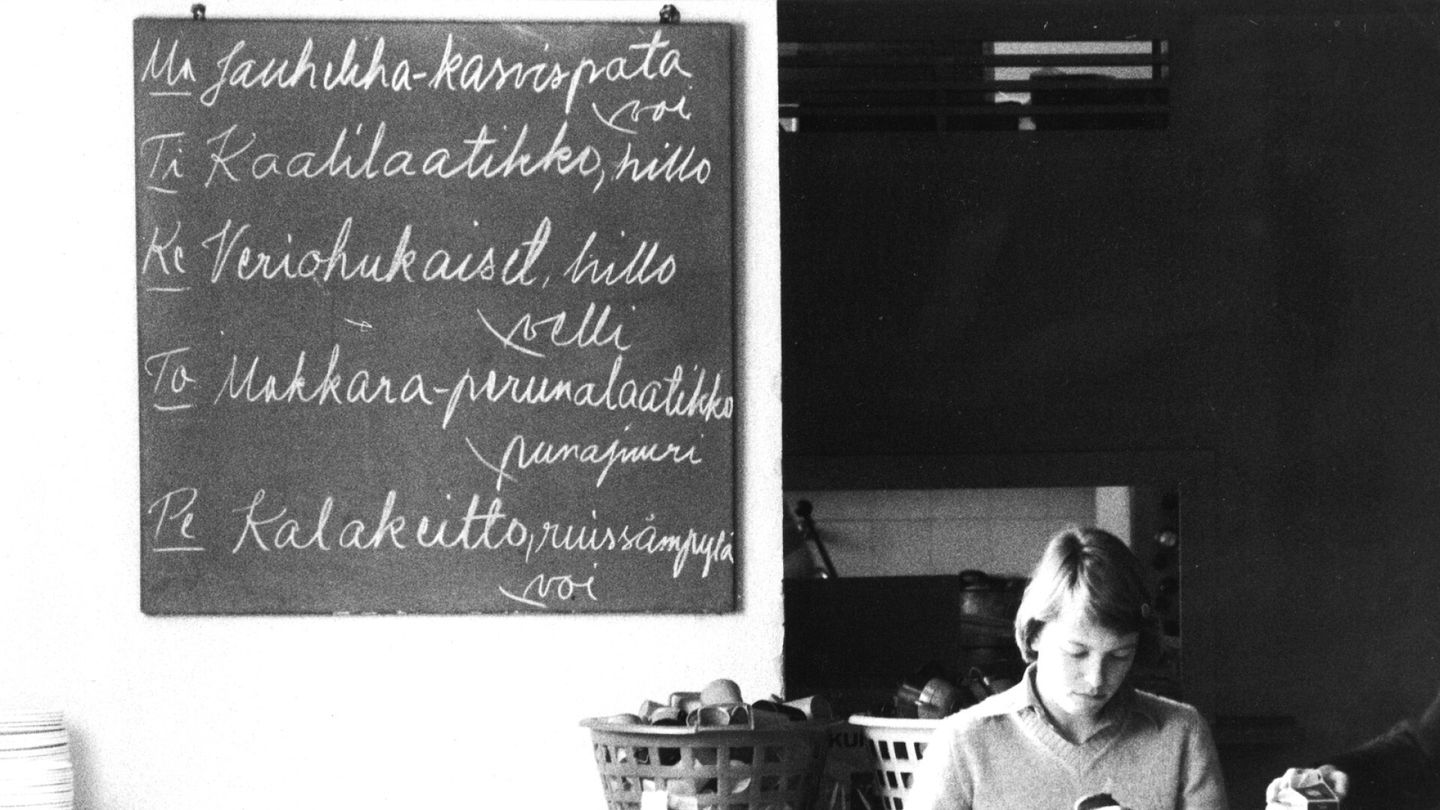 Ma Jauheliha-kasvispata
voi
Ti Kaalilaatikko, hillo
Ke Veriohukaiset, hillo
velli
To Makkara-perunalaatikko
punajuuri
Pe Kalakeitto, ruissämpylä
voi
KUI